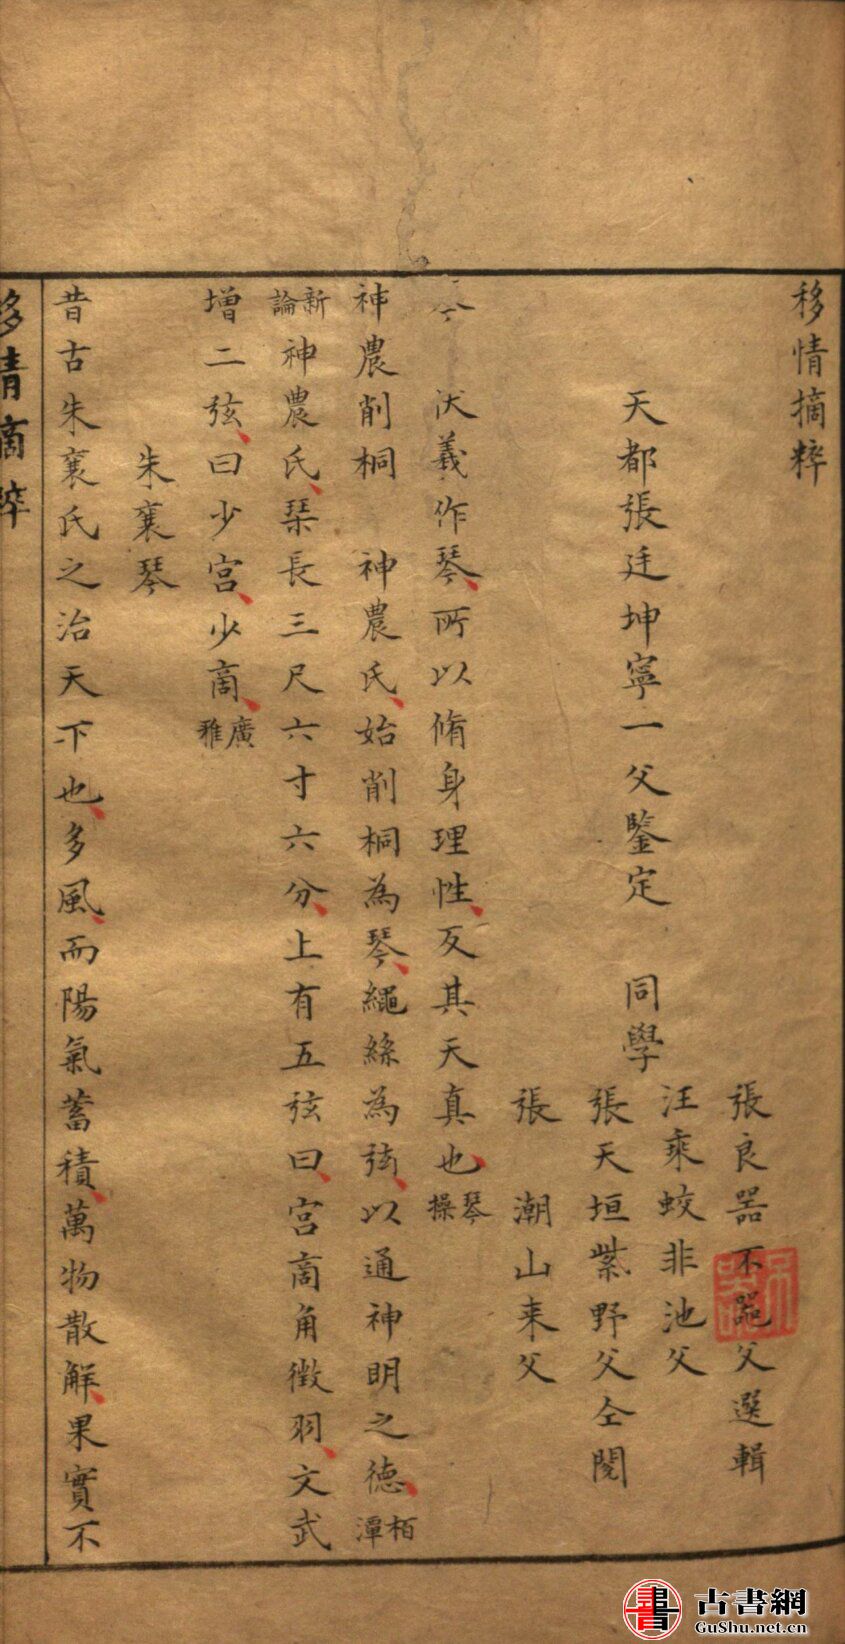 移情摘粹
張良器不器父選輯
汪乘蛟非池父
天都張廷坤寧一父鑒定　同學
張天垣紫野父仝閱
張　潮山来父
琴　伏羲作琴、所以脩身理性、反其天真也、琴操
神農削桐　神農氏、始削桐為琴、繩絲為弦、以通神明之德、栢潭
新論神農氏、琹長三尺六寸六分、上有五弦曰、宮商角徵羽、文武
增二弦、曰少宮、少商、廣雅
朱襄琴
昔古朱襄氏之治天下也、多風、而陽氣蓄積、萬物散解、果實不
移情摘粹
書 古書網
GuShu.net.cn